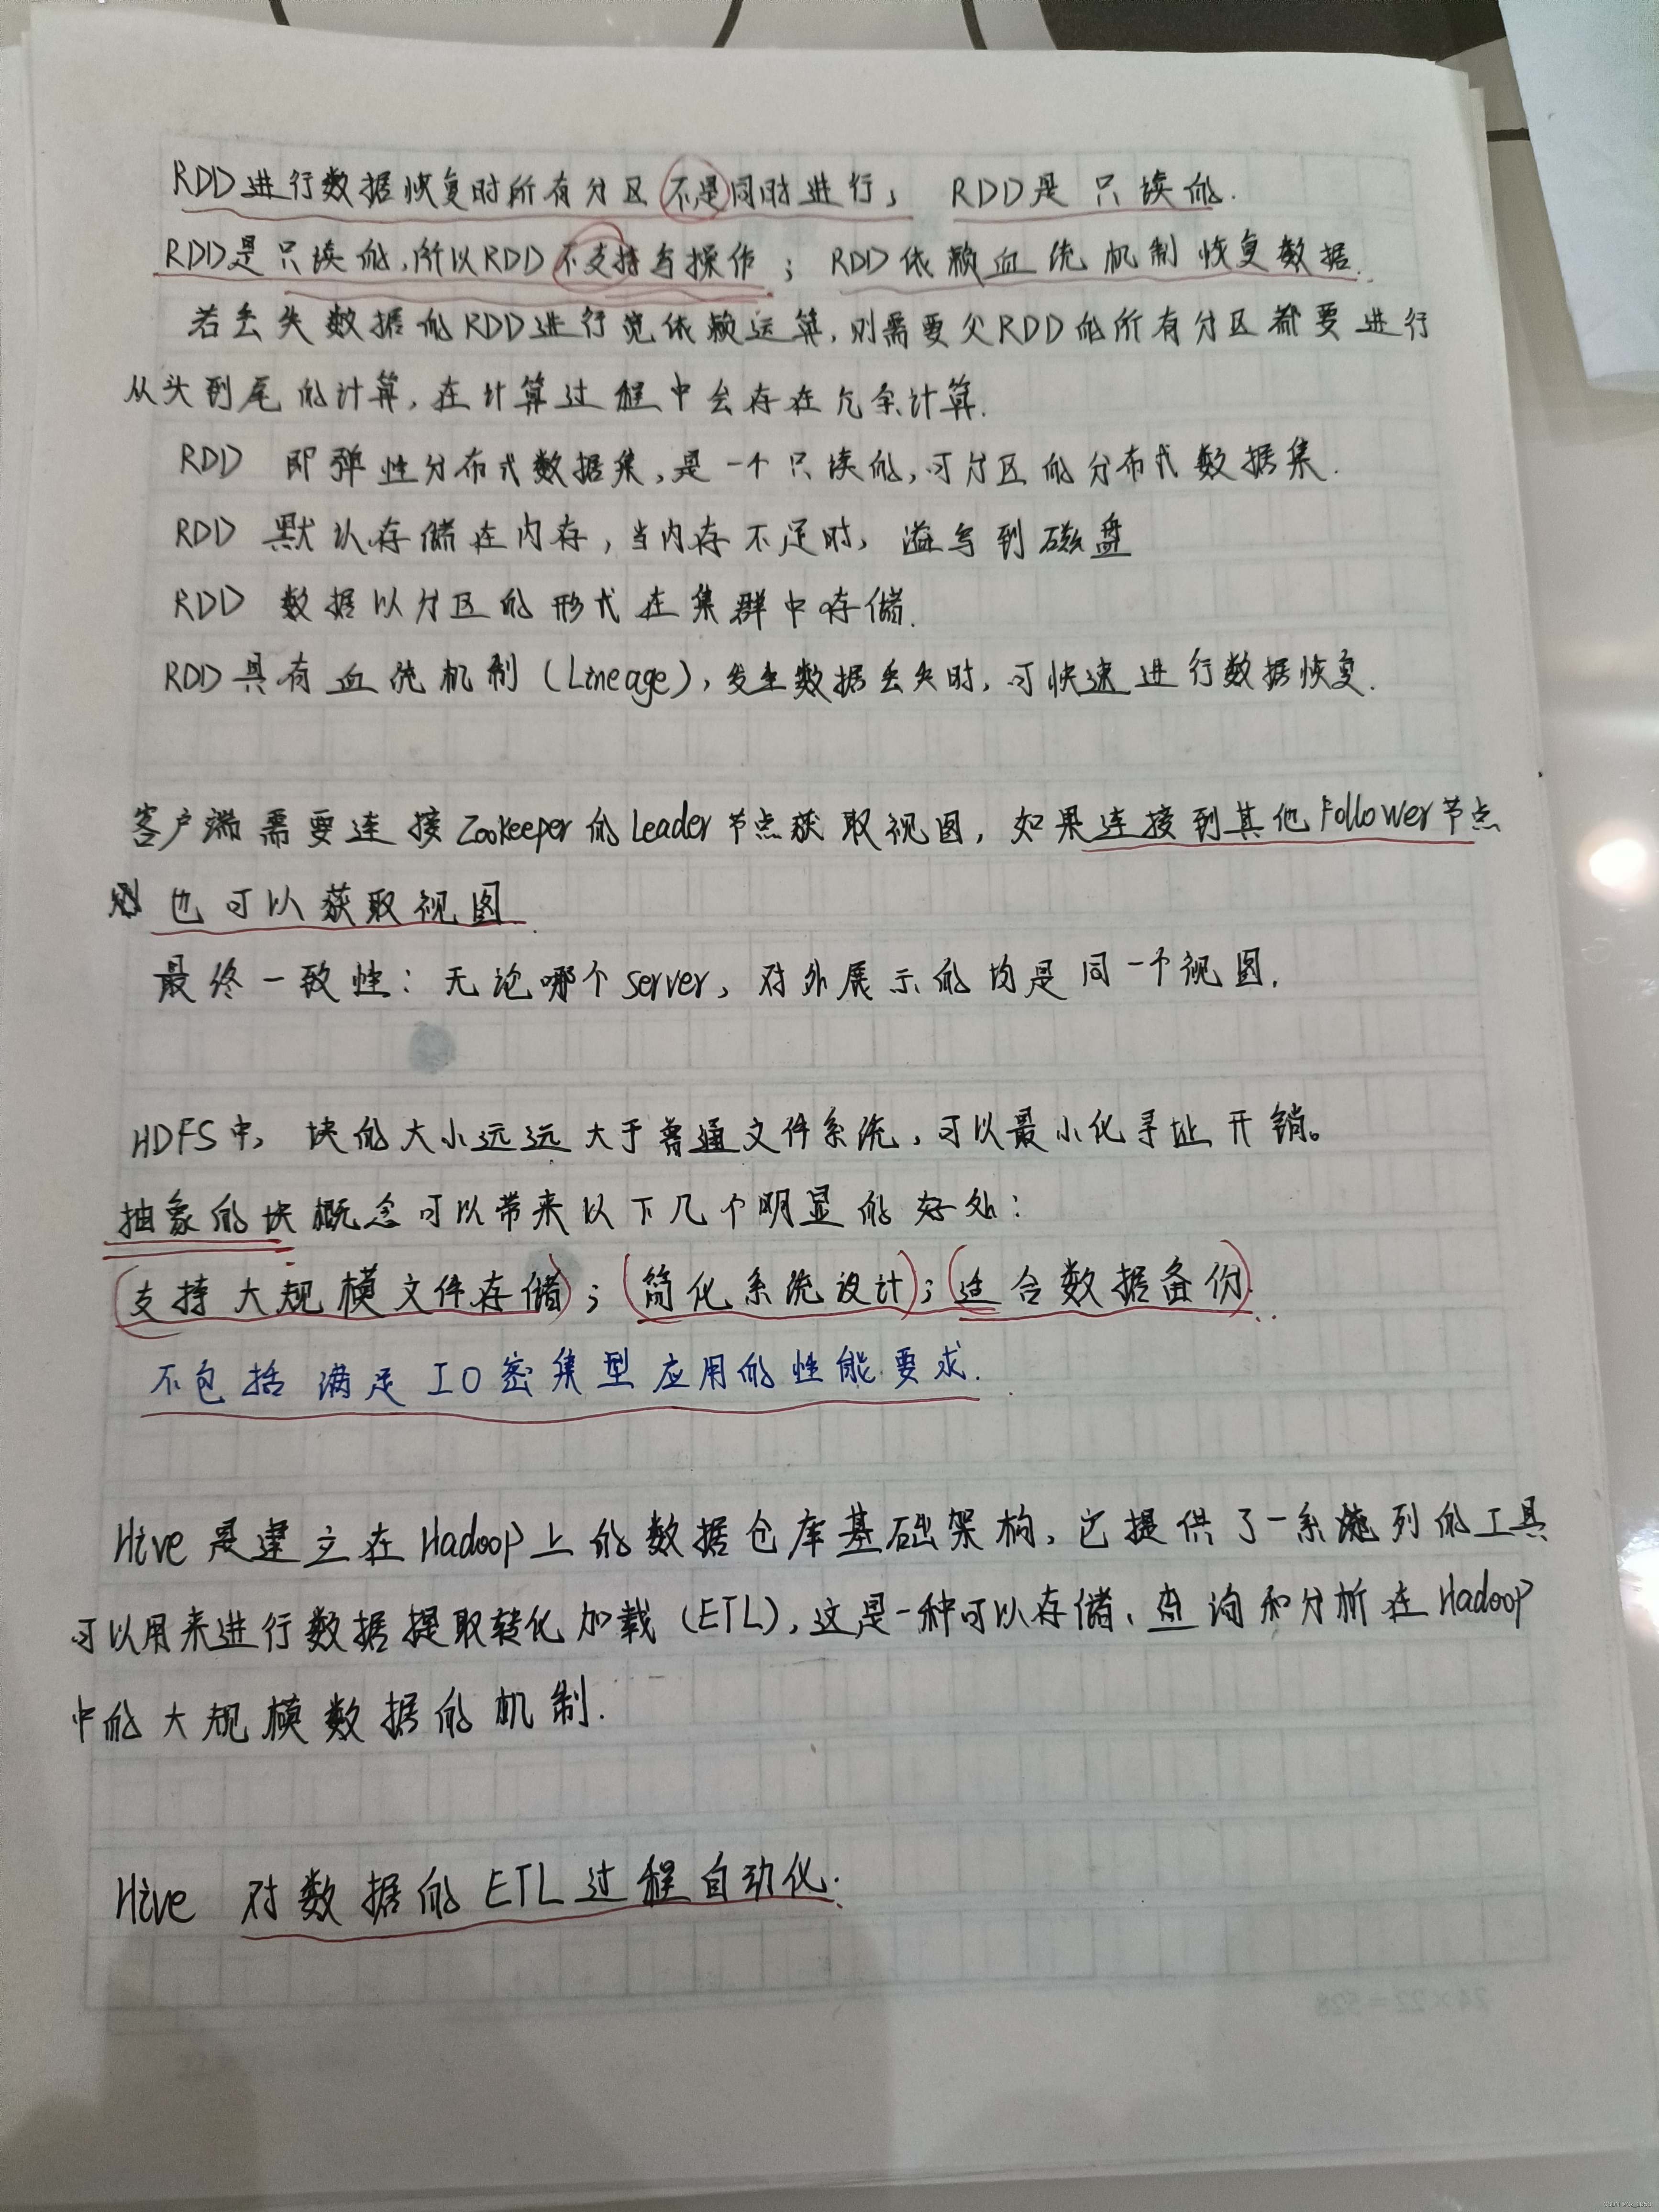 RDD进行数据恢复时所有分区不是同时进行, RDD是只读的.
RDD是只读的,所以RDD不支持写操作; RDD依赖血统机制恢复数据.
若丢失数据的RDD进行宽依赖运算,则需要父RDD的所有分区都要进行
从头到尾的计算,在计算过程中会存在冗余计算.
RDD 即弹性分布式数据集,是一个只读的,可分区的分布式数据集.
RDD 默认存储在内存,当内存不足时,溢写到磁盘
RDD 数据以分区的形式在集群中存储.
RDD具有血统机制(Lineage),发生数据丢失时,可快速进行数据恢复.
客户端需要连接Zookeeper的Leader节点获取视图,如果连接到其他Follower节点
则也可以获取视图.
最终一致性:无论哪个server,对外展示的均是同一个视图.
HDFS中,块的大小远远大于普通文件系统,可以最小化寻址开销。
抽象的块概念可以带来以下几个明显的好处:
(支持大规模文件存储);(简化系统设计);(适合数据备份).
不包括满足IO密集型应用的性能要求.
Hive是建立在Hadoop上的数据仓库基础架构,它提供了一系列的工具
可以用来进行数据提取转化加载(ETL),这是一种可以存储、查询和分析在Hadoop
中的大规模数据的机制.
Hive 对数据的ETL过程自动化.
24×22=528